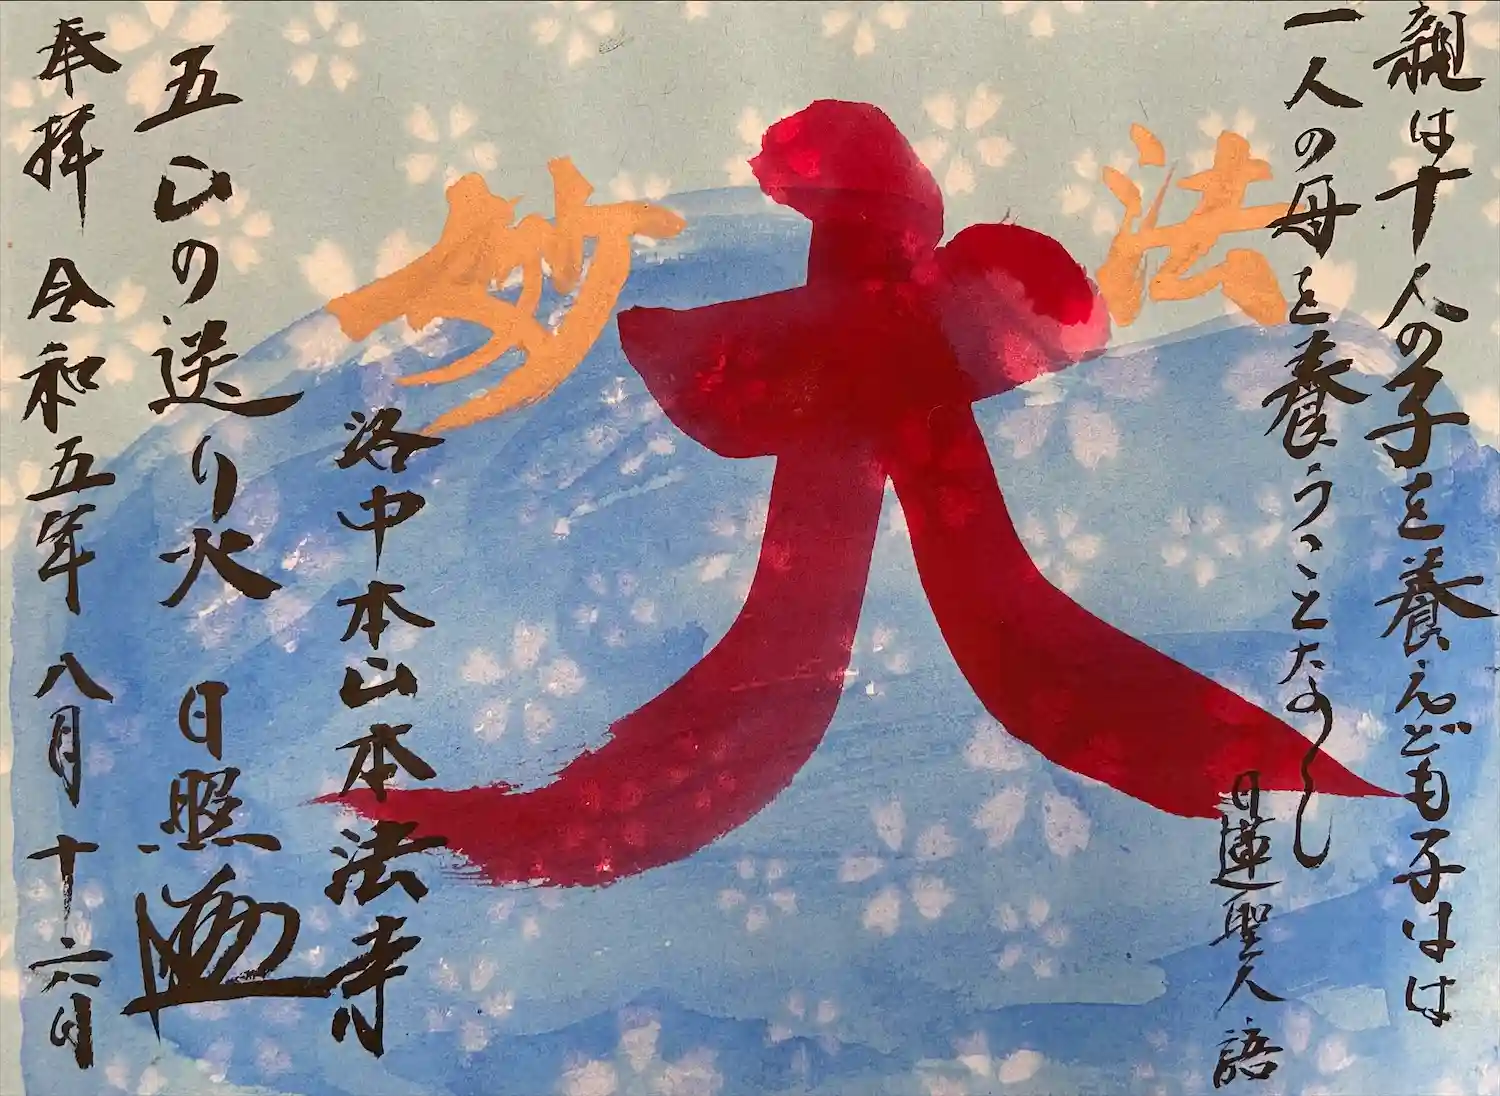 親は十人の子を養えども子はは
一人の母を養うことなし
日蓮聖人語
法
大
妙
洛中本山本法寺
五山の送り火 日照
奉拝 令和五年 八月 十六日